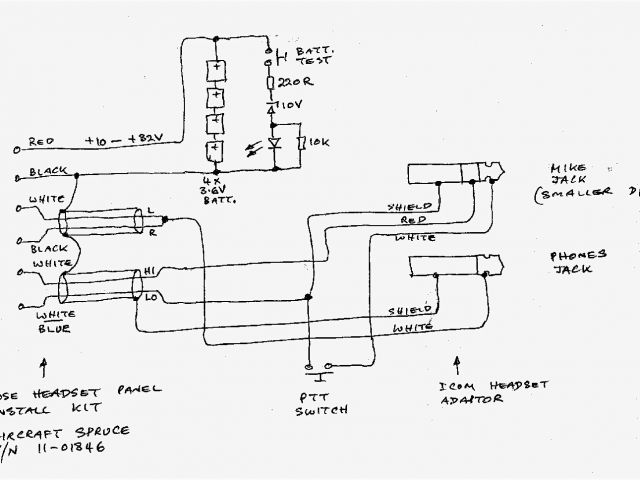 BATT.
TEST
220R
10V
10K
RED
+10 — +32V
4x
3.6V
BATT.
BLACK
WHITE
L
R
BLACK
WHITE
HI
LO
WHITE
BLUE
MIKE
JACK
(SMALLER
SHIELD
RED
WHITE
PHONES
JACK
SHIELD
WHITE
PTT
SWITCH
ICOM HEADSET
ADAPTOR
HEADSET PANEL
KIT
SPRUCE
11-01846